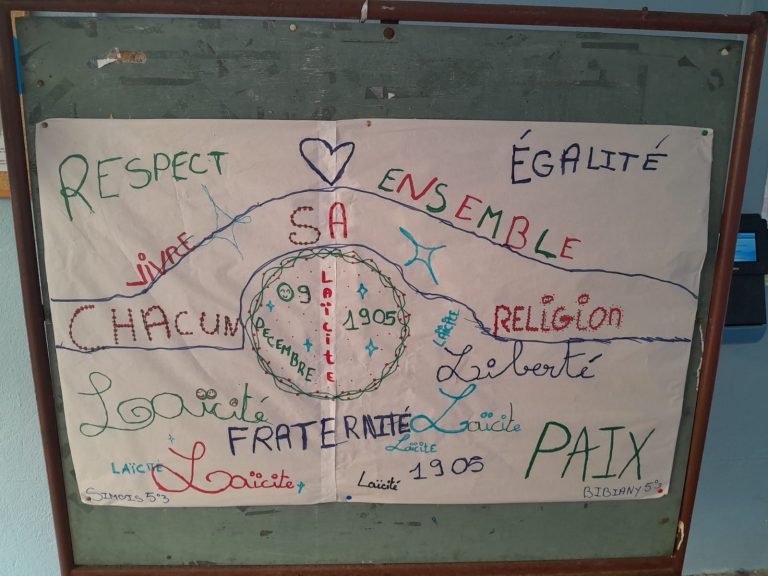 RESPECT
ÉGALITÉ
VIVRE ENSEMBLE
CHACUN SA RELIGION
09
DECEMBRE
1905
LAÏCITE
LAÏCITÉ
Liberté
Laïcité
FRATERNITÉ
Laïcite
Laïcité
1905
PAIX
LAÏCITE
Laïcite
Laïcité
SIMOIS 5°3
BIBIANY 5°3